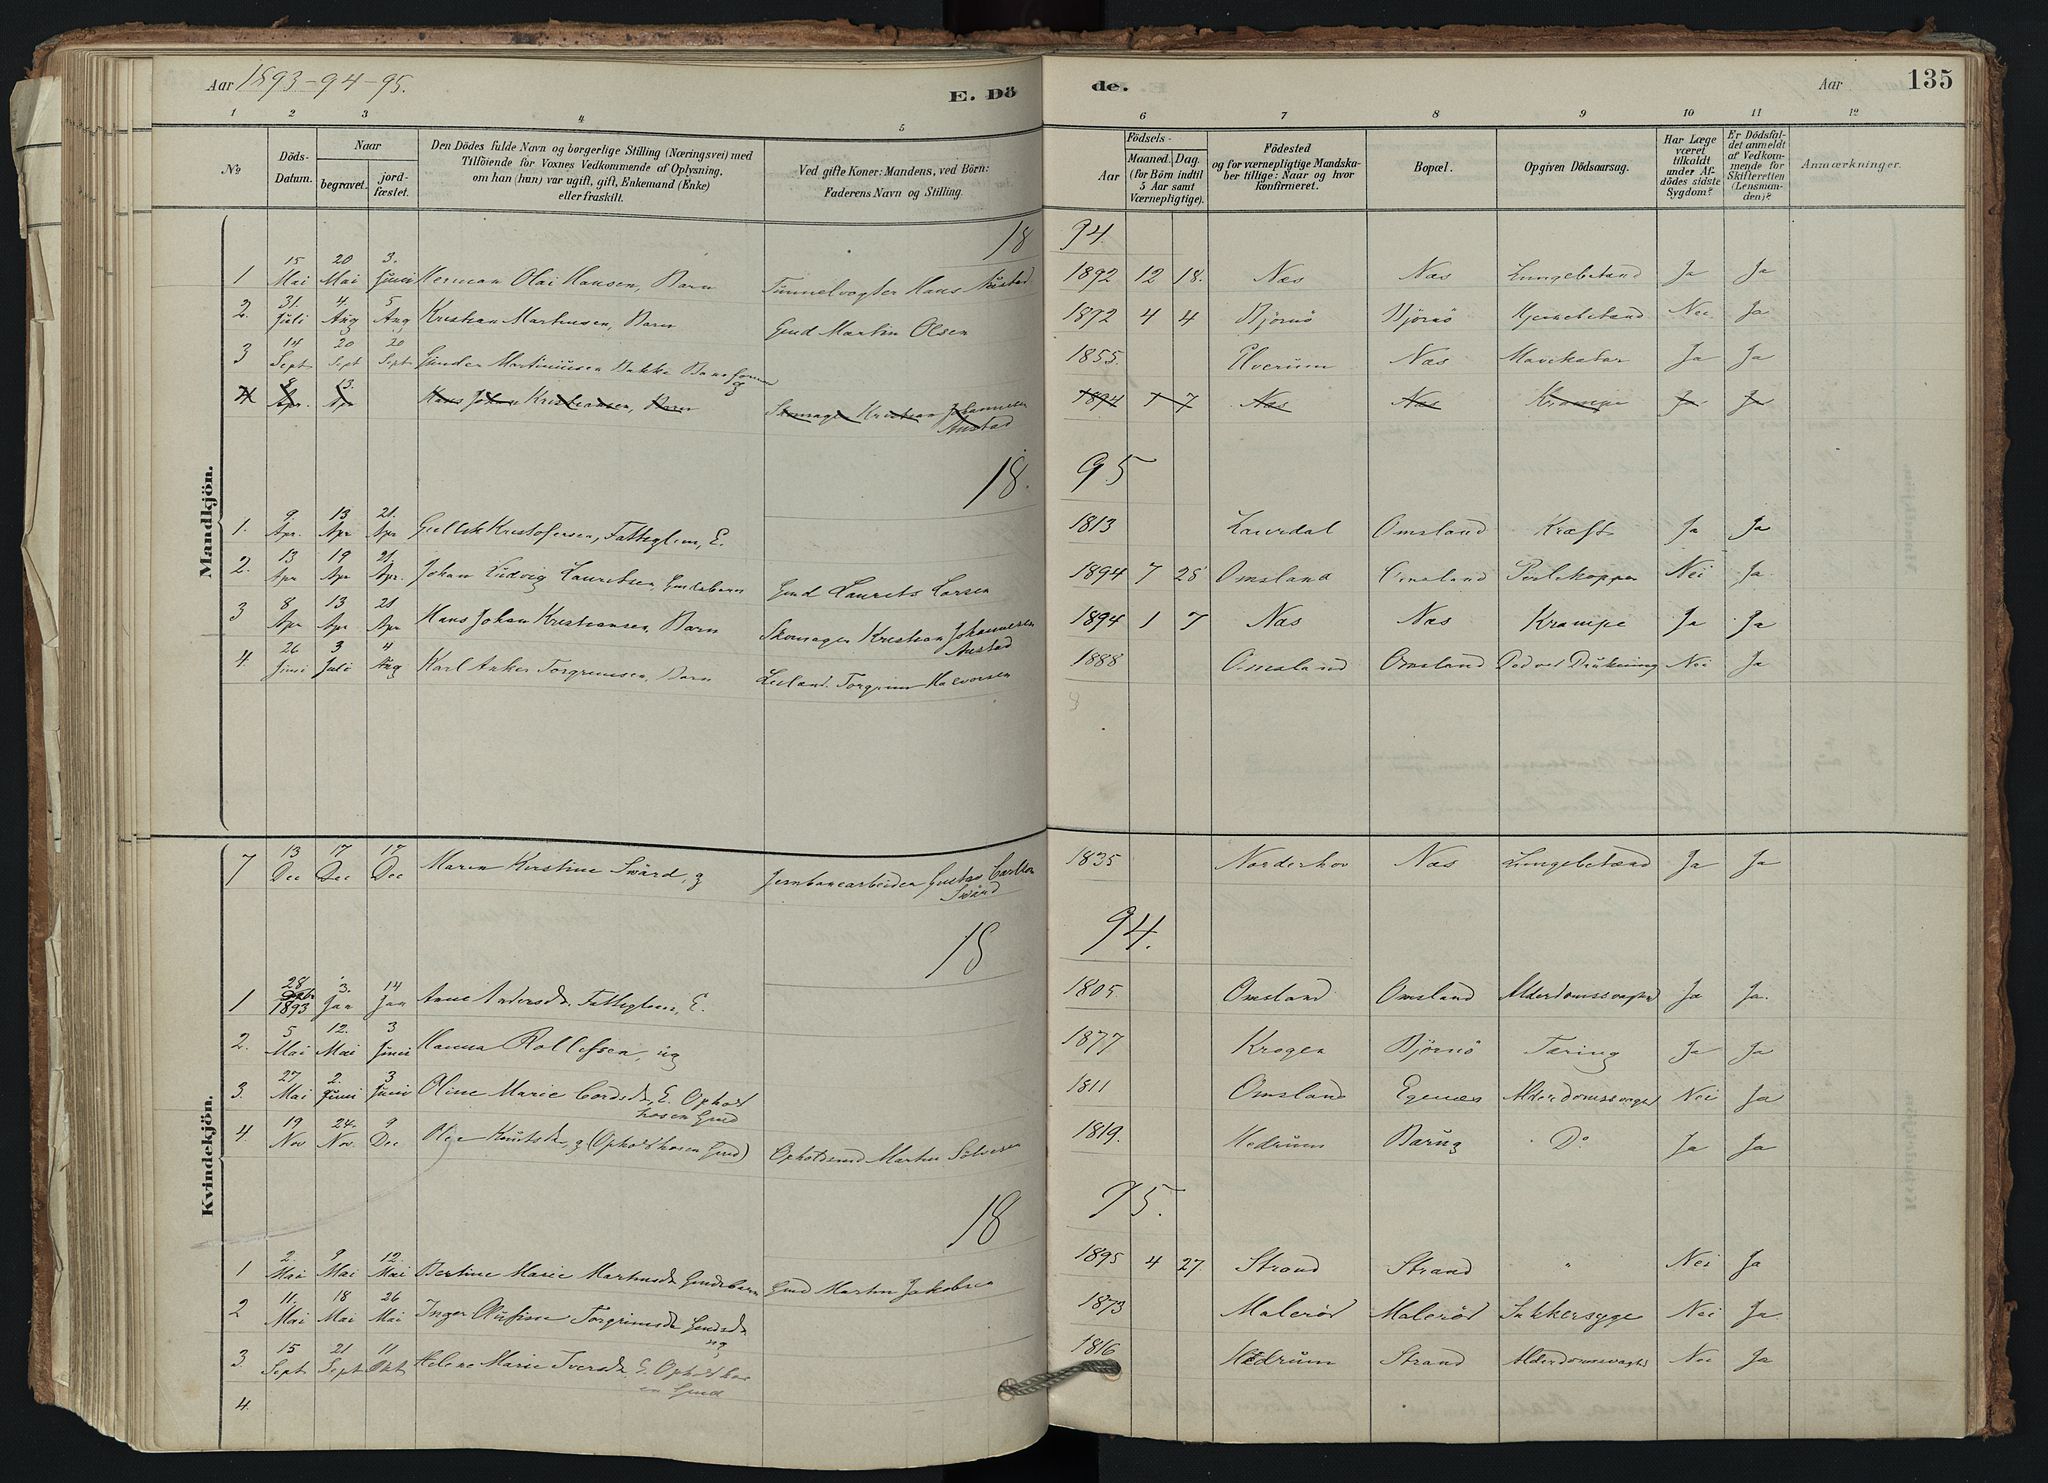 Aar 1893-94-95.
E. Dö
de.
Aar
135
1 2 3 4 5 6 7 8 9 10 11 12
No
Döds-Datum.
Naar
begravet.
jord-fæstet.
Den Dödes fulde Navn og borgerlige Stilling (Næringsvei) med
Tilföiende for Voxnes Vedkommende af Oplysning,
om han (hun) var ugift, gift, Enkemand (Enke)
eller fraskilt.
Ved gifte Koner: Mandens, ved Börn:
Faderens Navn og Stilling.
Födsels-
Aar
Maaned. Dag.
(for Börn indtil
5 Aar samt
Værnepligtige).
Födested
og for værnepligtige Mandska-
ber tillige: Naar og hvor
konfirmeret.
Bopæl.
Opgiven Dödsaarsag.
Har Læge
været
tilkaldt
under Af-
dödes sidste
Sygdom?
Er Dödsfal-
det anmeldt
af Vedkom-
mende for
Skifteretten
(Lensman-
den)?
Anmærkninger.
Mandkjön.
18 94.
1 15 Mai 20 Mai 3. Juni Herman Olai Hansen, Barn Tunnelvogter Hans 1892 12 18. Næs Næs Lungebetænd Ja Ja
2. 31. Juli 4. Aug 5 Aug Kristian Martinsen, Barn Gmd Martin Olsen 1872 4 4 Bjørnø Bjørnø Hjernebetænd Nei Ja
3 14 Sept 20 Sept 20 Sept Gunder Martiniussen Bakke 1855. Elverum Næs Mavekatar Ja Ja
4 8 Apr. 13. Apr Hans Johan Kristiansen, Barn Skomager Kristian Johannesen 1894 1 7 Næs Næs Krampe Ja Ja
Austad
18. 95
1. 9. Apr. 13 Apr 21. Apr Gullik Kristofersen, Fattiglem, E. 1813 Laurdal Omsland Kræft Ja Ja
2. 13 Apr 19 Apr 21. Apr. Johan Ludvig Lauritsen, Gmdsbarn Gmd Laurits Larsen 1894 7 25 Omsland Omsland Nei Ja.
3 8 Apr 13 Apr 21 Apr Hans Johan Kristiansen, Barn Skomager Kristian Johannesen 1894 1 7 Næs Næs Krampe Ja Ja
Austad
4. 26 Juni 3 Juli 4 Aug Karl Anker Torgrimsen, Barn Leiland. Torgrim Halvorsen 1888 Omsland Omsland Død ved Drukning Nei Ja
Kvindekjön.
7 13 Dec 17 Dec 17 Dec Maren Kirstine Svärd, g Jernbanearbeider Gustav Carlson 1835 Norderhov Næs Lungebetænd Ja Ja
Svärd
18 94.
1 28 1893 3. Jan 14 Jan Anne Andersdr Fattiglem, E. 1805. Omsland Omsland Alderdomssvaghed Ja Ja.
2. 5 Mai 12. Mai 3 Juni Hanna Rollefsen, ug 1877 Krogen Bjørnø Tæring Ja Ja
3. 27 Mai 2. Juni 3 Juni Oline Marie E. Ophold 1811 Omsland Egenæs Alderdomssvaghed Nei Ja
4 19 Nov 24. Nov. 9 Dec Knutsdr, g (Opholdskosen Gmd) Opholdsmd Martin 1819. Hedrum Barug Do Ja Ja
18 95.
1 2. Mai 9 Mai 12. Mai Bertine Marie Martinsdr Gmdsbarn Gmd Martin Jakobsen 1895 4 27. Strand Strand " Nei Ja
2 11. Mai 18 Mai 26 Mai Inger Torgrimsdr Gmdsdr 1873 Malerød Malerød Sukkersyge Nei Ja.
ug
3. 15 Sept 21 Sept 11 Okt Helene Marie Iversdr E. 1816 Hedrum Strand Alderdomssvaghed Nei Ja
4.